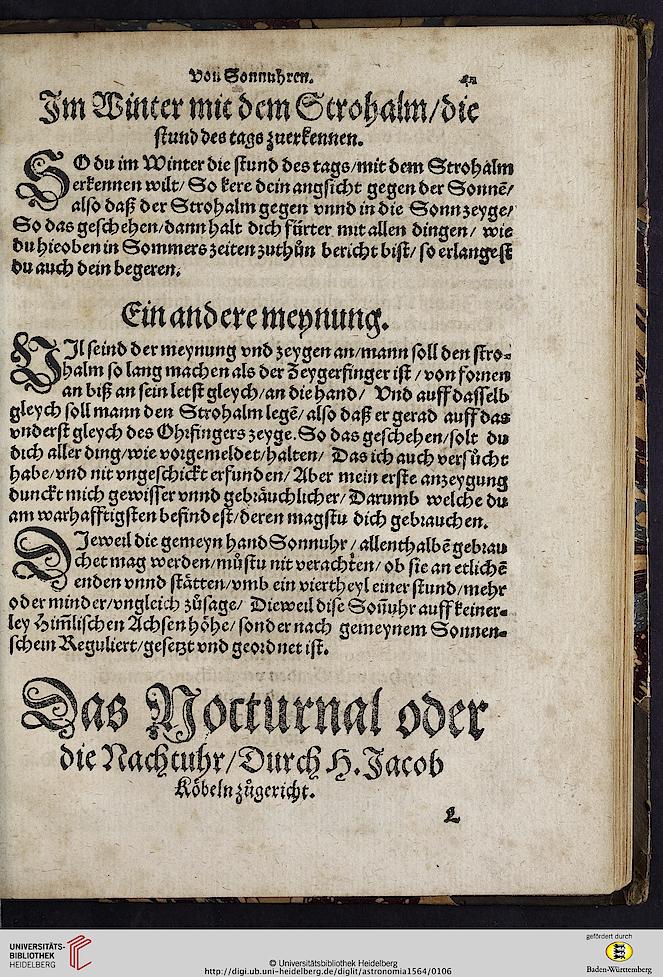 Von Sonnuhren.
Im Winter mit dem Strohalm/die
stund des tags zuerkennen.
SO du im Winter die stund des tags/mit dem Strohalm
erkennen wilt/ So kere dein angsicht gegen der Sonnē/
also daß der Strohalm gegen vnnd in die Sonn zeyge/
So das geschehen/dann halt dich fürter mit allen dingen/ wie
du hieoben in Sommers zeiten zuthůn bericht bist/ so erlangest
du auch dein begeren.
Ein andere meynung.
VIl seind der meynung vnd zeygen an/mann soll den stro⸗
halm so lang machen als der Zeygerfinger ist/ von fornen
an biß an sein letst gleych/an die hand/ Vnd auff dasselb
gleych soll mann den Strohalm legē/ also daß er gerad auff das
vnderst gleych des Ohrfingers zeyge. So das geschehen/solt du
dich aller ding/wie vorgemeldet/halten/ Das ich auch versůcht
habe/vnd nit vngeschickt erfunden/ Aber mein erste anzeygung
dunckt mich gewisser vnnd gebräuchlicher/ Darumb welche du
am warhafftigsten befindest/deren magstu dich gebrauchen.
DJeweil die gemeyn hand Sonnuhr/ allenthalbē gebrau
chet mag werden/můstu nit verachten/ ob sie an etlichē
enden vnnd stätten/vmb ein viertheyl einer stund/mehr
oder minder/vngleich zůsage/ Dieweil dise Soñuhr auff keiner⸗
ley Him̃lischen Achsen höhe/sonder nach gemeynem Sonnen⸗
schein Reguliert/gesetzt vnd geordnet ist.
Das Nocturnal oder
die Nachtuhr/Durch H. Jacob
Köbeln zůgericht.
L
UNIVERSITÄTS-
BIBLIOTHEK
HEIDELBERG
© Universitätsbibliothek Heidelberg
http://digi.ub.uni-heidelberg.de/diglit/astronomia1564/0106
gefördert durch
Baden-Württemberg